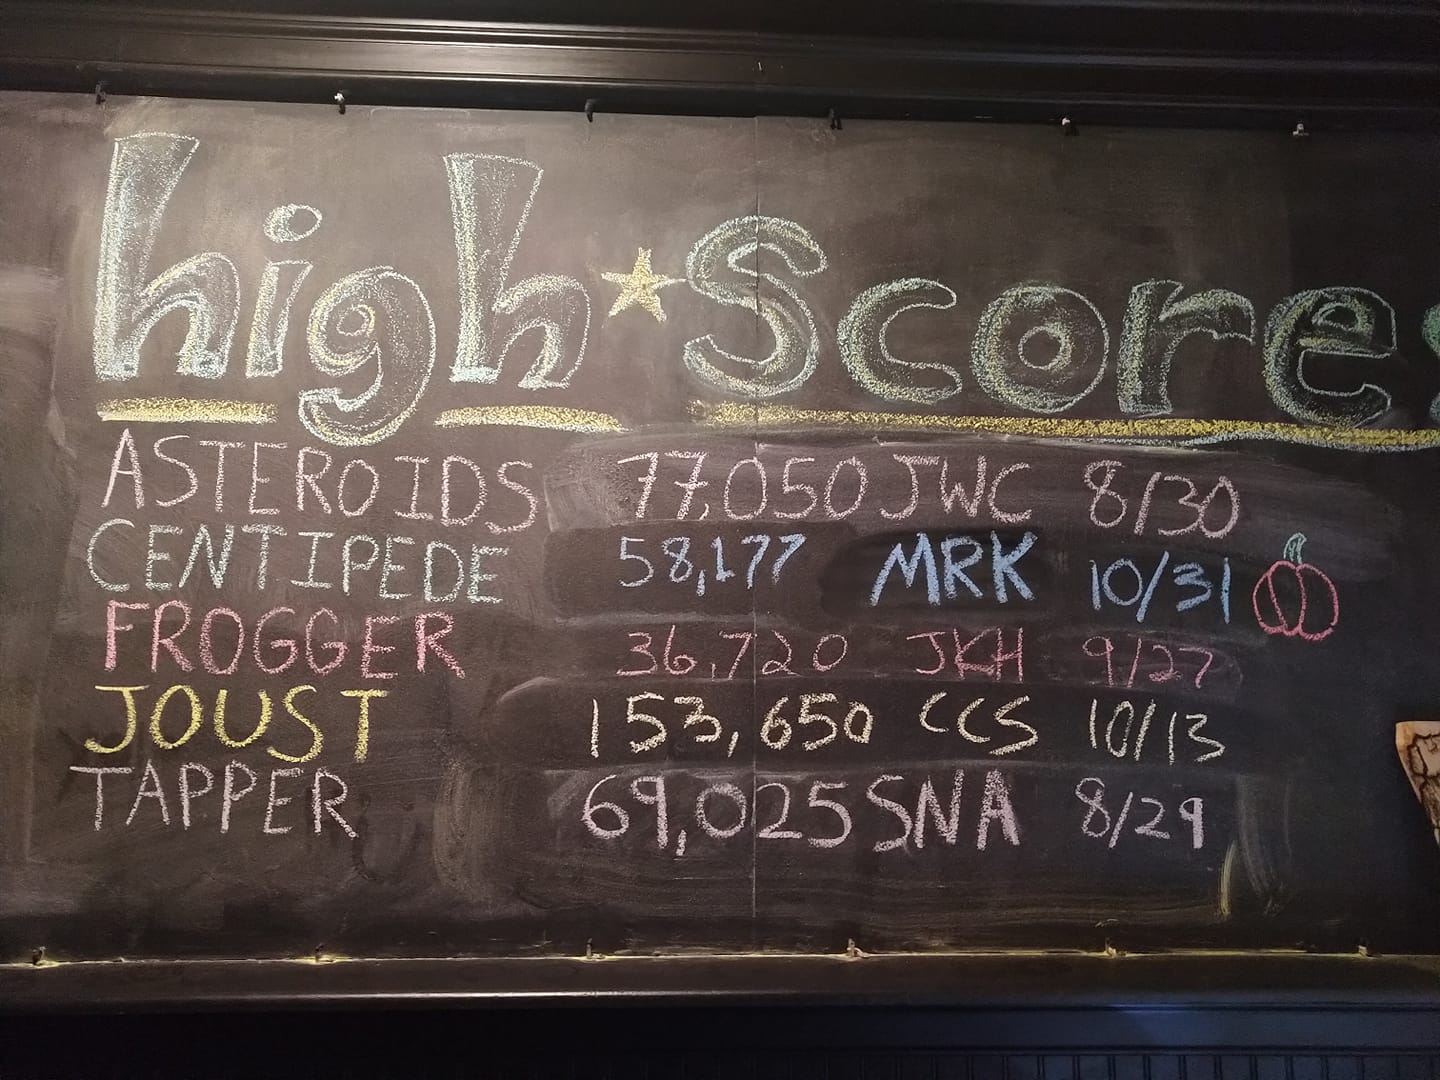 high★Scores
ASTEROIDS 77,050 JWC 8/30
CENTIPEDE 58,177 MRK 10/31
FROGGER 36,720 JKH 9/27
JOUST 153,650 CCS 10/13
TAPPER 69,025 SNA 8/29